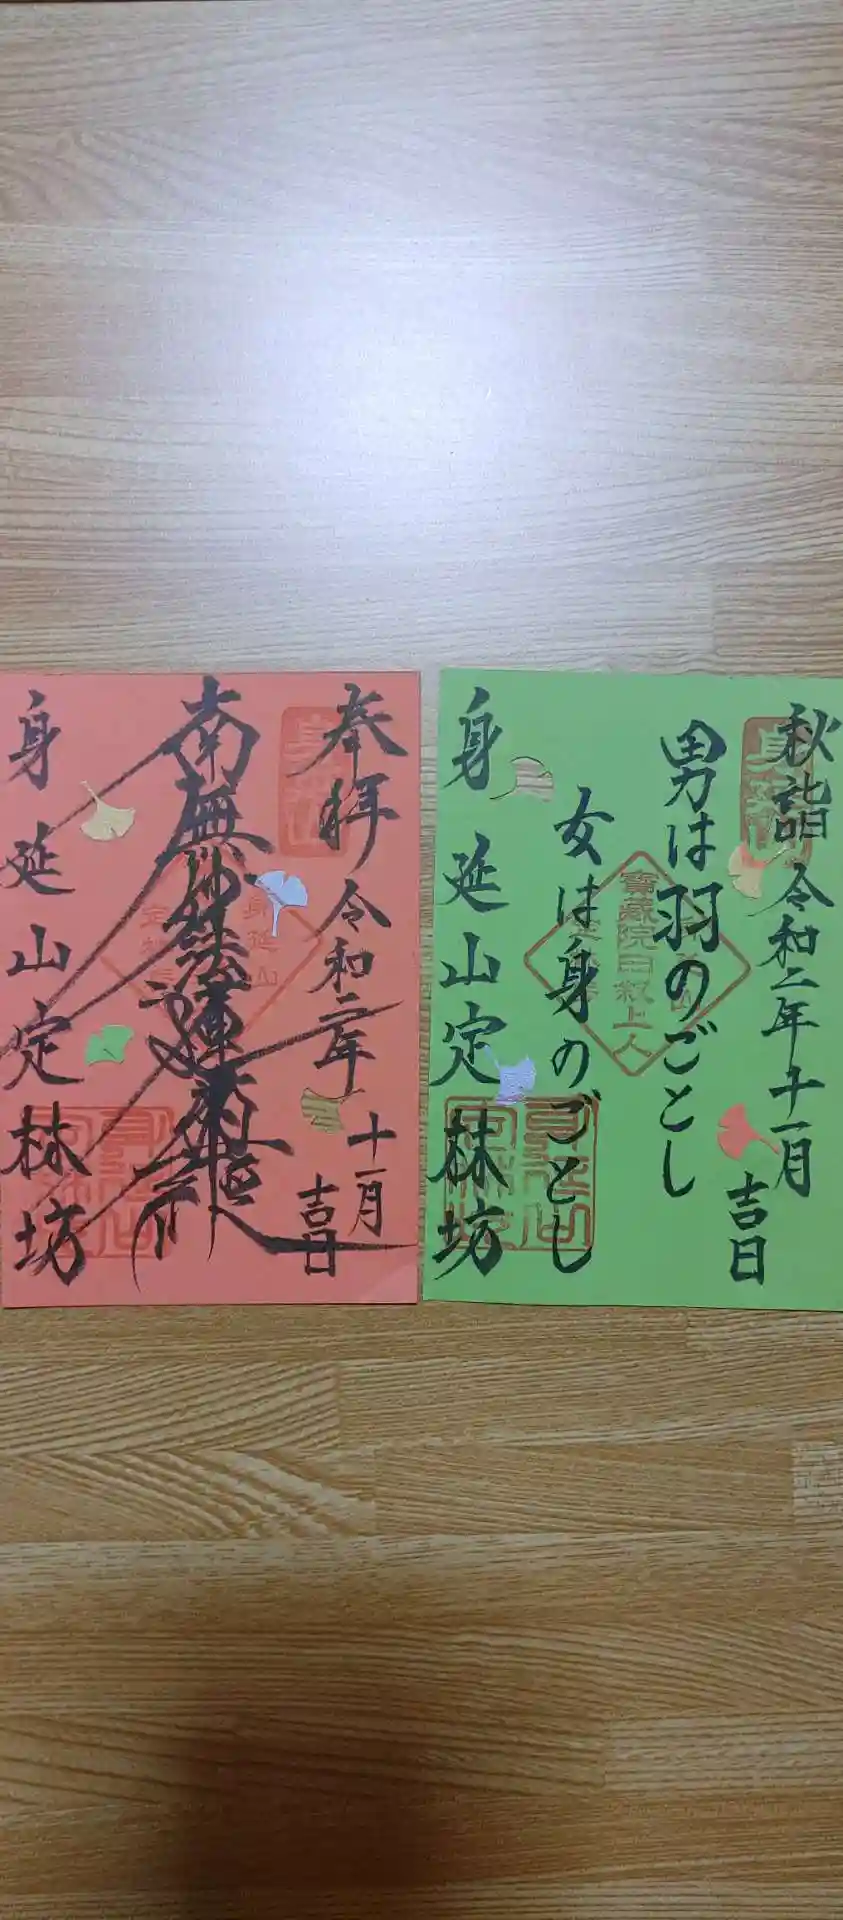 秋詣 令和二年十一月
吉日
男は羽のごとし
女は身のごとし
身延山定林坊
寶蔵院日叙上人
奉拝 令和二年 十一月
吉日
南無妙法蓮華経
身延山定林坊
身延山